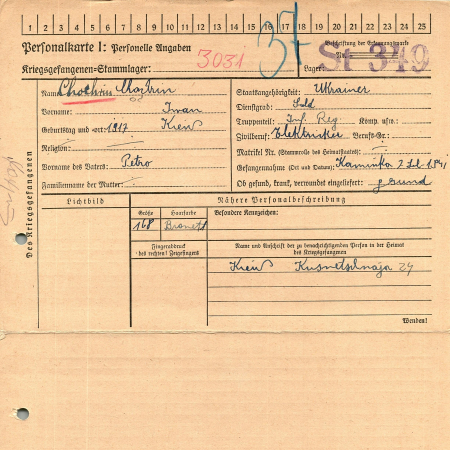 1 2 3 4 5 6 7 8 9 10 11 12 13 14 15 16 17 18 19 20 21 22 23 24 25
Personalkarte I: Personelle Angaben
Kriegsgefangenen-Stammlager:
3031
37
Beschriftung der Erkennungsmarke
Nr.
St 349
Lager:
Des Kriegsgefangenen
Name:
Vorname: Iwan
Geburtstag und -ort: 1917 Kiew
Religion:
Vorname des Vaters: Petro
Familienname der Mutter:
Staatsangehörigkeit: Ukrainer
Dienstgrad: Sold
Truppenteil: Inf. Reg Komp. usw.:
Zivilberuf: Elektriker Berufs-Gr.:
Matrikel Nr. (Stammrolle des Heimatstaates):
Gefangennahme (Ort und Datum): Kaminka
Ob gesund, krank, verwundet eingeliefert: gesund
Lichtbild
Nähere Personalbeschreibung
Größe
Haarfarbe
Besondere Kennzeichen:
168
Fingerabdruck
des rechten! Zeigefingers
Name und Anschrift der zu benachrichtigenden Person in der Heimat
des Kriegsgefangenen
Kiew
Wenden!